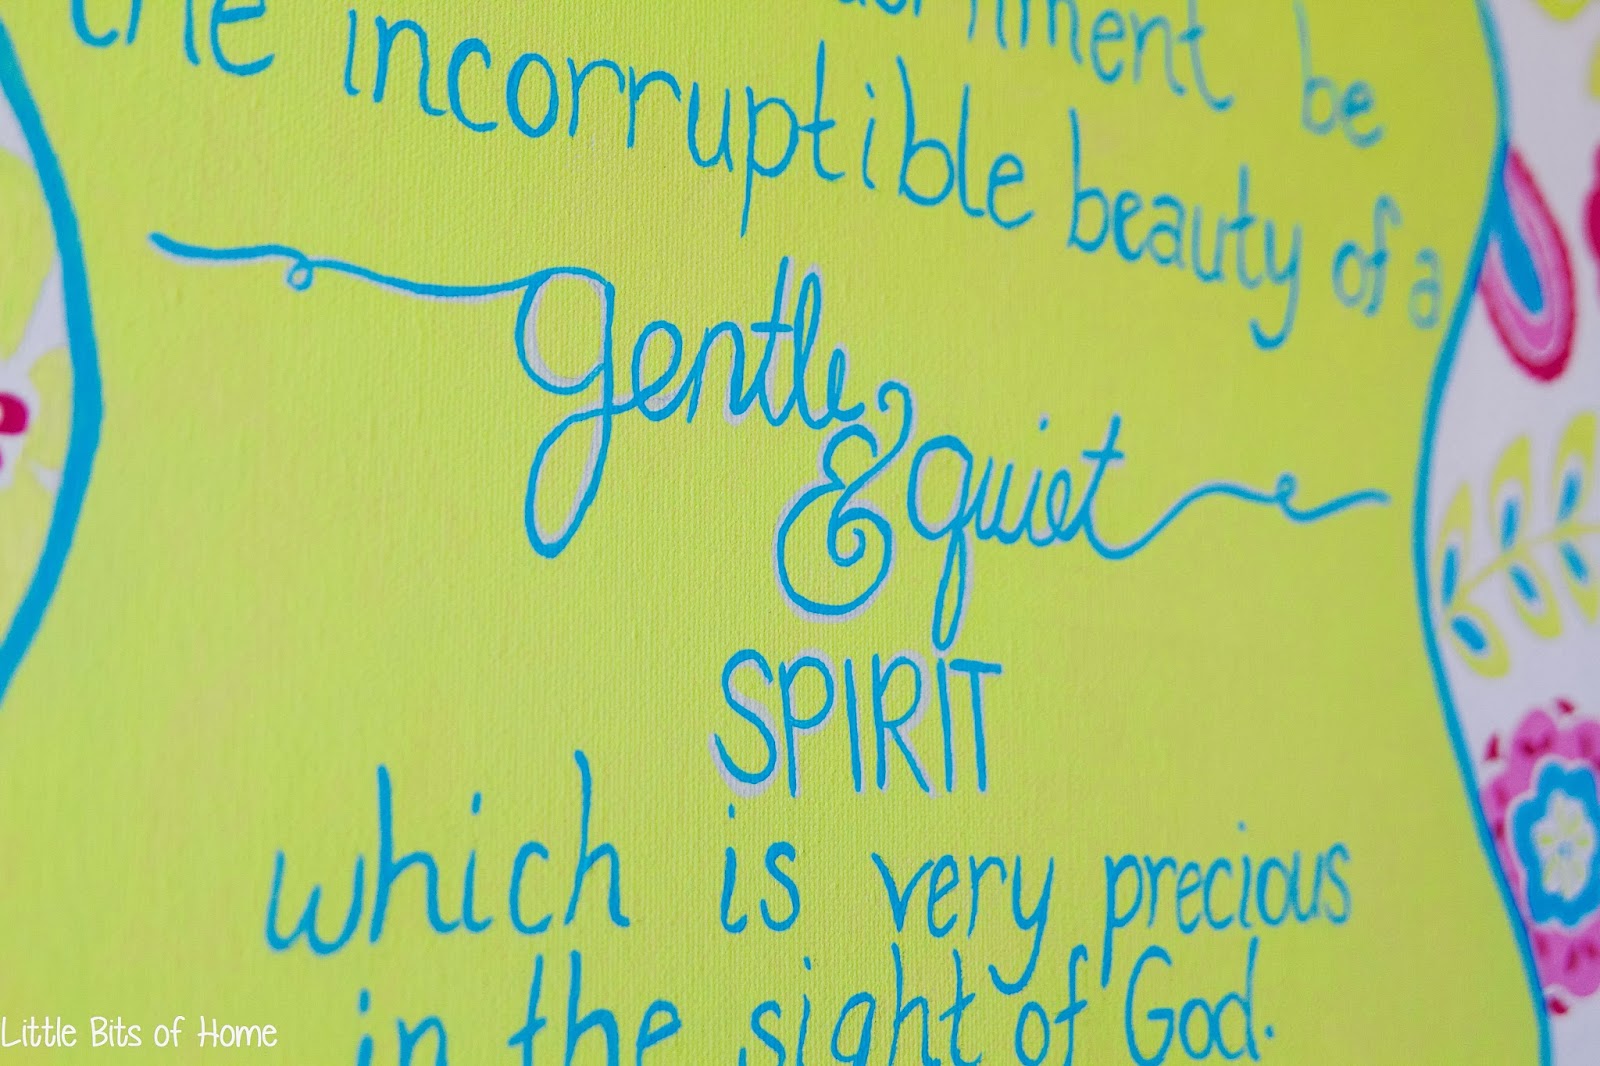 be
the incorruptible beauty of a
gentle
& quiet
SPIRIT
which is very precious
in the sight of God.
Little Bits of Home